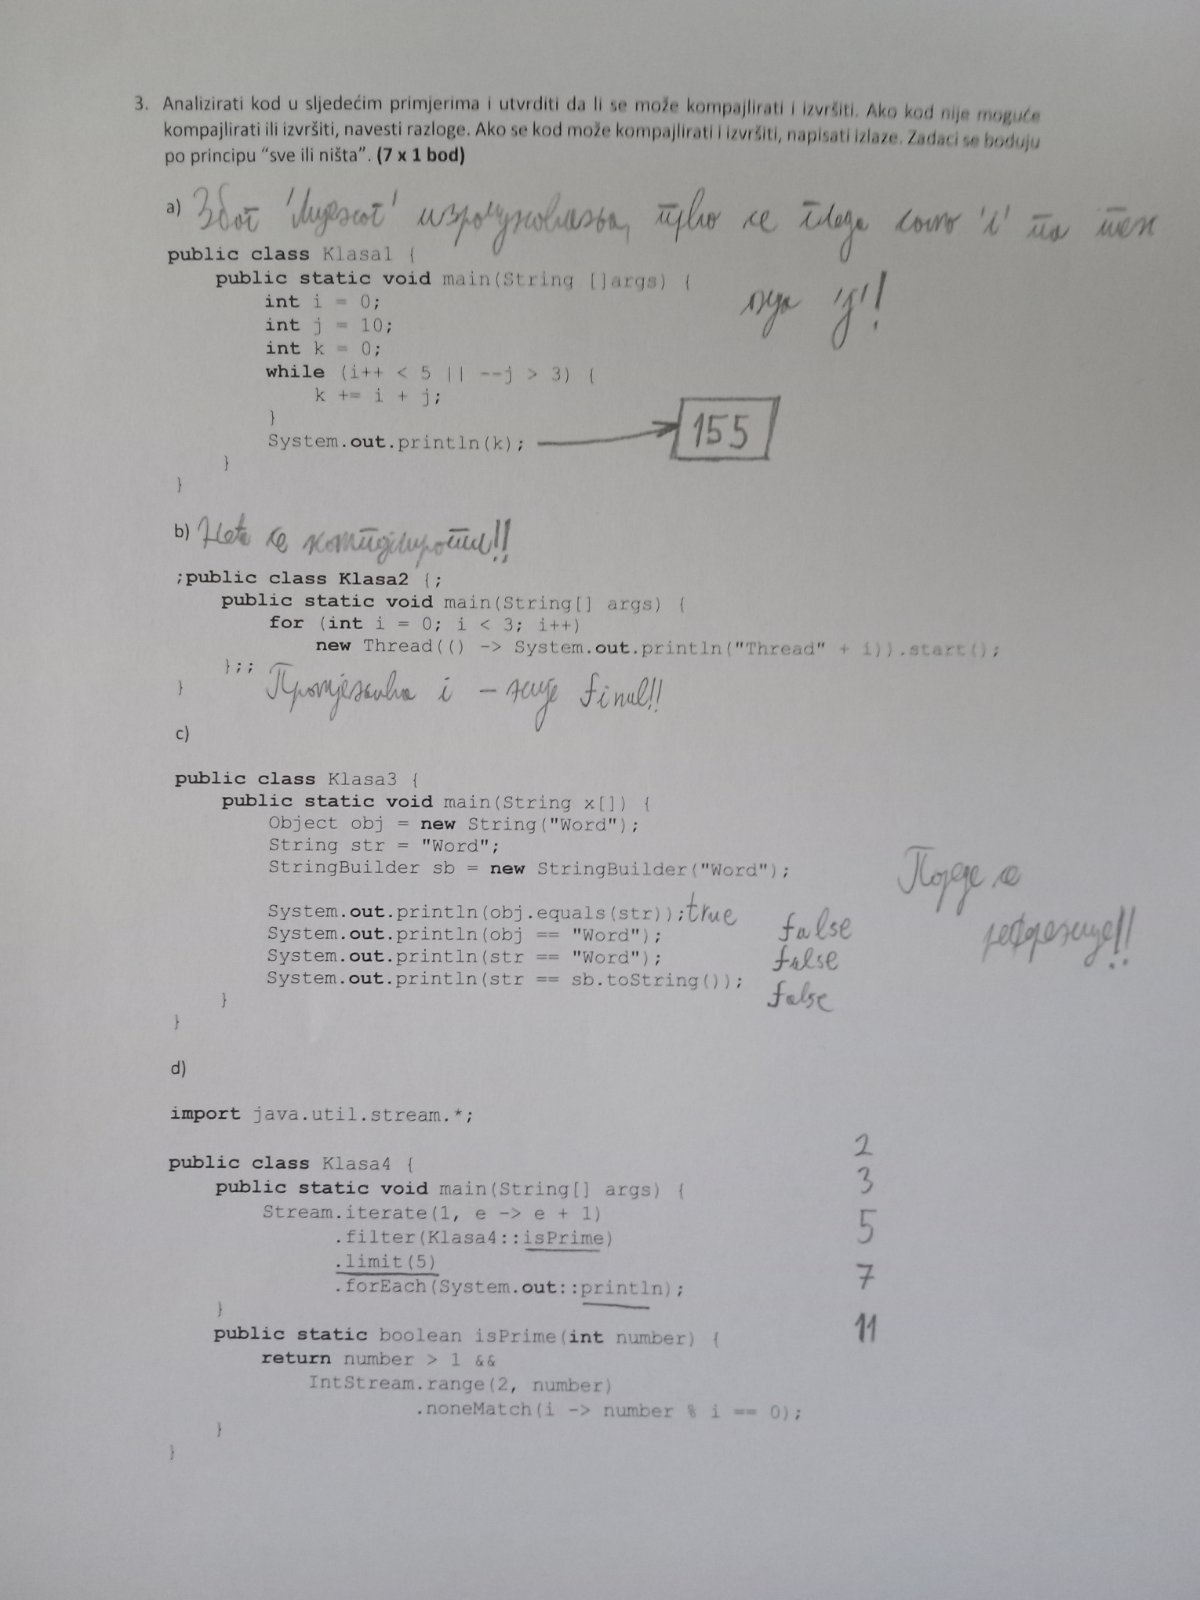 3. Analizirati kod u sljedećim primjerima i utvrditi da li se može kompajlirati i izvršiti. Ako kod nije moguće
kompajlirati ili izvršiti, navesti razloge. Ako se kod može kompajlirati i izvršiti, napisati izlaze. Zadaci se boduju
po principu “sve ili ništa”. (7 x 1 bod)
a) Због 'лијеног' израчунавања, прво се гледа само 'i' па тек
public class Klasa1 {
public static void main(String []args) {
онда 'j'!
int i = 0;
int j = 10;
int k = 0;
while (i++ < 5 || --j > 3) {
k += i + j;
}
System.out.println(k);
155
}
}
b) Неће се компајлирати!!
;public class Klasa2 {;
public static void main(String[] args) {
for (int i = 0; i < 3; i++)
new Thread(() -> System.out.println("Thread" + i)).start();
};;
} Промјенљива i - није final!!
c)
public class Klasa3 {
public static void main(String x[]) {
Object obj = new String("Word");
String str = "Word";
StringBuilder sb = new StringBuilder("Word");
Пореде се
System.out.println(obj.equals(str)); true
System.out.println(obj == "Word"); false
референце!!
System.out.println(str == "Word"); false
System.out.println(str == sb.toString()); false
}
}
d)
import java.util.stream.*;
2
public class Klasa4 {
3
public static void main(String[] args) {
Stream.iterate(1, e -> e + 1)
5
.filter(Klasa4::isPrime)
.limit(5)
7
.forEach(System.out::println);
}
11
public static boolean isPrime(int number) {
return number > 1 &&
IntStream.range(2, number)
.noneMatch(i -> number % i == 0);
}
}